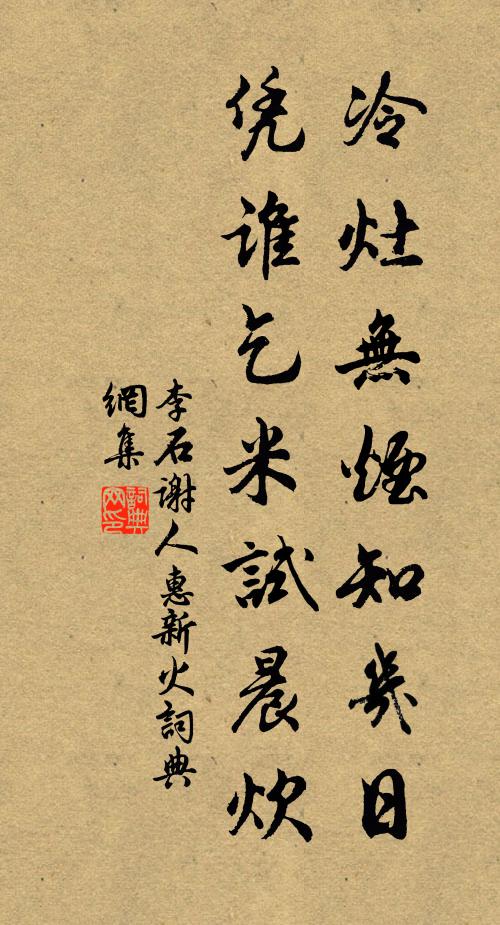 冷灶無煙知幾日
凭谁乞米試晨炊
李石谢人惠新火詞典
網集
詞典
网印